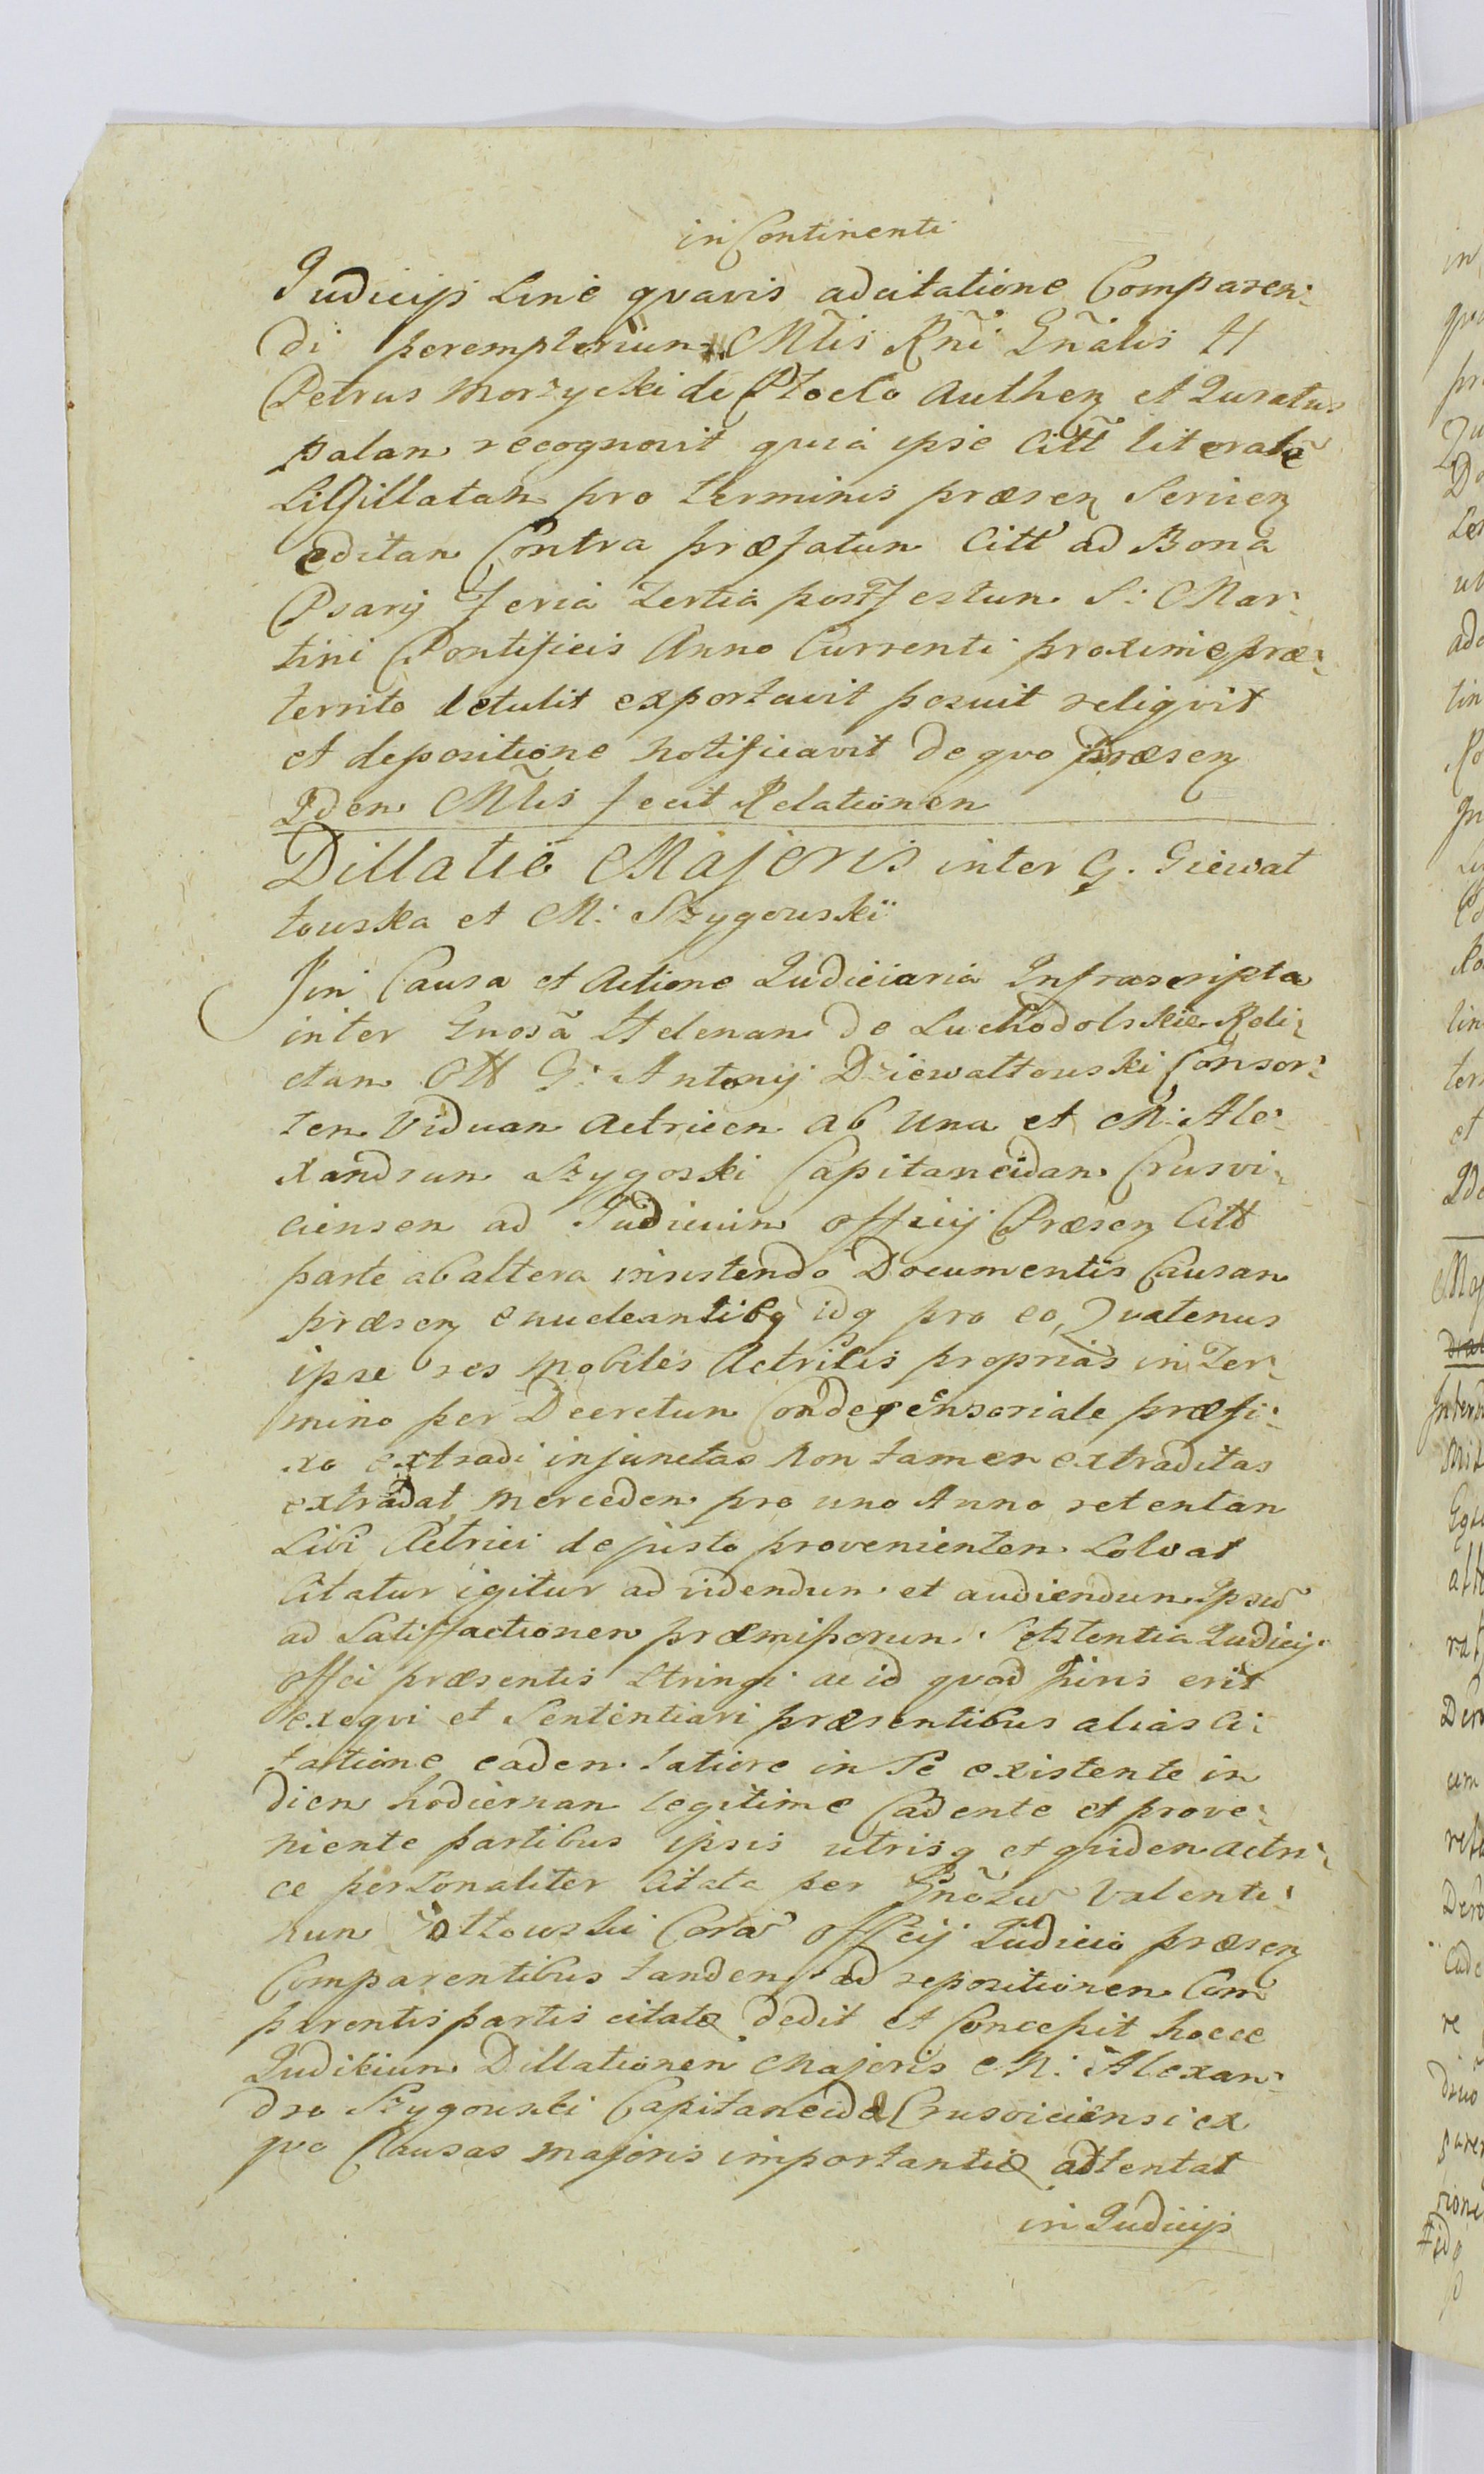 in Continenti
Judicijs Sine quavis adcitatione Comparen:
di peremptorium Mtlis Rñi Gñalis H
Petrus Morzycki de Plocko Authen et Juratus
palam recognovit quia ipse Citt literalẽ
Sigillatam pro terminis præsen Servien
editam Contra præfatum Citt ad Bona
Psary Feria tertia post Festum S: Mar:
tini Pontificis Anno Currenti proxime præ:
territo detulit exportavit posuit reliqvit
et depositione notificavit de qvo præsen
Idem Mtlis fecit Relationem
Dillatio Majoris inter G. Giewal
towska et M: Szygowski
In Causa et Actione Judiciaria Infrascripta
inter Gnosã Helenam de Suchodolskie Reli:
ctam Ott G: Antonij Dziewaltowski Consor:
tem Viduam Actricem ab una et M: Ale:
xandrum Szygoski Capitaneidam Crusvi:
ciensem ad Judicium officij Præsen Citt
parte ab altera insistendo Documentis Causam
præsen enucleantibq idq pro eo, Quatenus
ipse res Mobiles Actricis proprias in Ter:
mino per Decretum Condescensoriale præfi:
xo extradi injunctas non tamen extraditas
extradat mercedem pro uno Anno retentam
Sibi Actrici de justo provenientem Solvat
Citatur igitur ad videndum et audiendum Ipsũ
ad Satisfactionem præmissorum Setstentia Judicij
offci præsentis Stringi ac id quod juris erit
exeqvi et Sententiari præsentibus alias Ci:
tatione eadem latiore in Se existente in
diem hodiernam legitime Cadente et prove:
niente partibus ipsis utrisq et quidem actri:
ce personaliter Citata per Gnõsũ Valenti:
num Cora offcij Judicio præsen
Comparentibus tandem ad repositionem Com
parentis partis citatæ dedit et Concepit hocce
Judikium Dillationem Majoris M: Alexan:
dro Szygowski Capitaneidæ Crusviciensi ex
quo Causas majoris importantiæ adtentat
in Judicijs